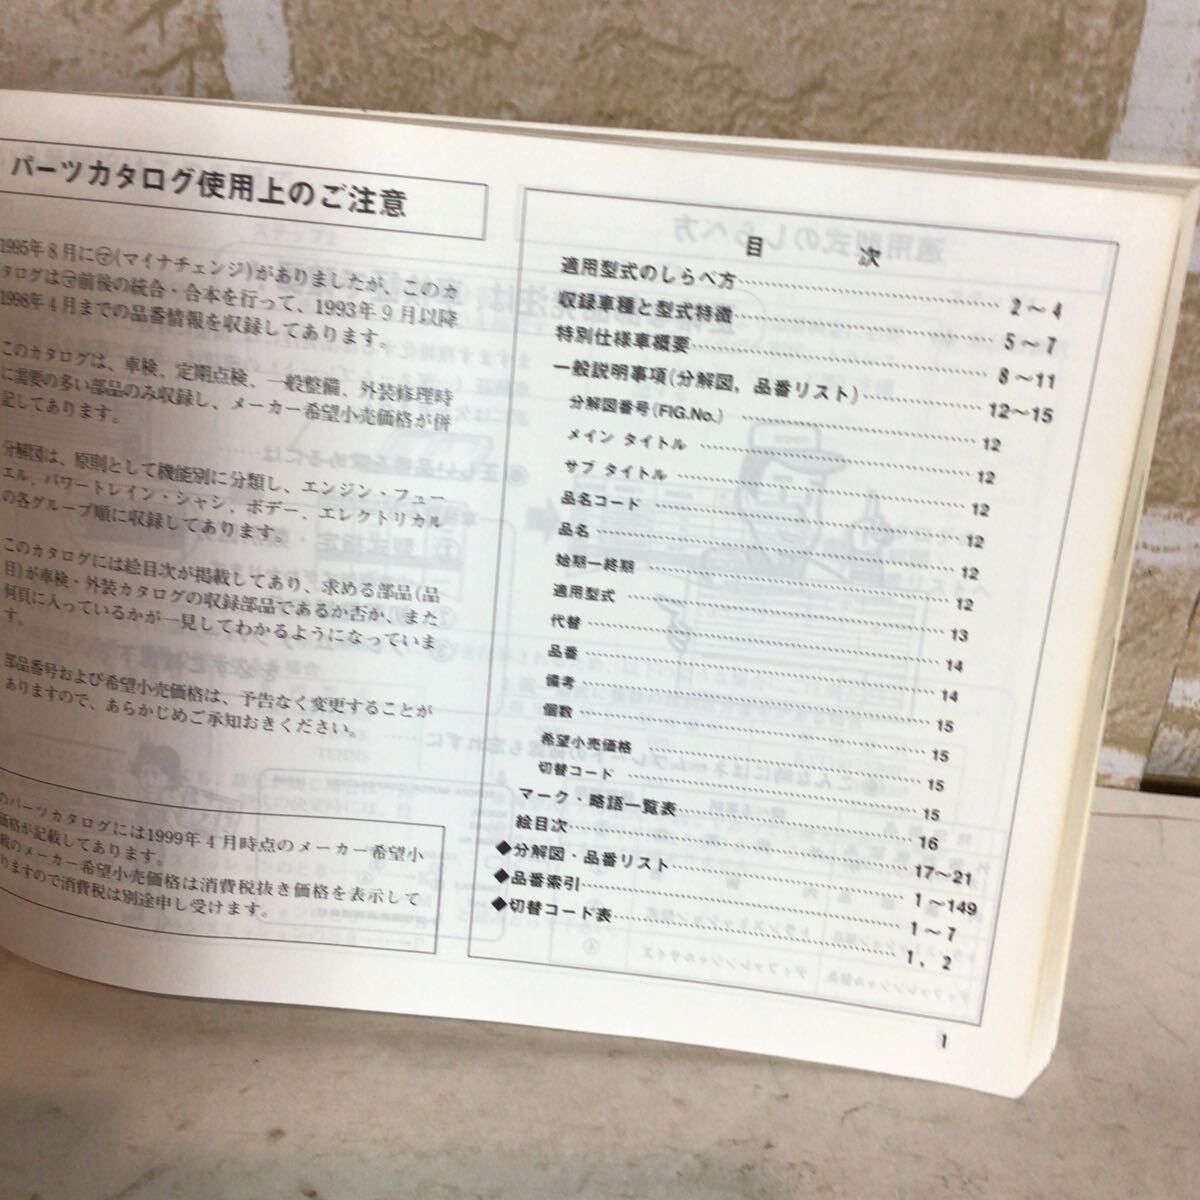 パーツカタログ使用上のご注意
1995年8月に㋮(マイナチェンジ)がありましたが、このカ
タログは㋮前後の統合・合本を行って、1993年9月以降
1998年4月までの品番情報を収録してあります。
このカタログは、車検、定期点検、一般整備、外装修理時
に需要の多い部品のみ収録し、メーカー希望小売価格が併
記してあります。
分解図は、原則として機能別に分類し、エンジン・フュー
エル、パワートレイン・シャシ、ボデー、エレクトリカル
の各グループ順に収録してあります。
このカタログには絵目次が掲載してあり、求める部品(品
目)が車検・外装カタログの収録部品であるか否か、また
何頁に入っているかが一見してわかるようになっていま
す。
部品番号および希望小売価格は、予告なく変更することが
ありますので、あらかじめご承知おきください。
のパーツカタログには1999年4月時点のメーカー希望小
価格が記載してあります。
載のメーカー希望小売価格は消費税抜き価格を表示して
りますので消費税は別途申し受けます。
目 次
適用型式のしらべ方 2～4
収録車種と型式特徴 5～7
特別仕様車概要 8～11
一般説明事項(分解図，品番リスト) 12～15
分解図番号(FIG.No.) 12
メイン タイトル 12
サブ タイトル 12
品名コード 12
品名 12
始期ー終期 12
適用型式 13
代替 14
品番 14
備考 15
個数 15
希望小売価格 15
切替コード 15
マーク・略語一覧表 16
絵目次 17～21
◆分解図・品番リスト 1～149
◆品番索引 1～7
◆切替コード表 1，2
1